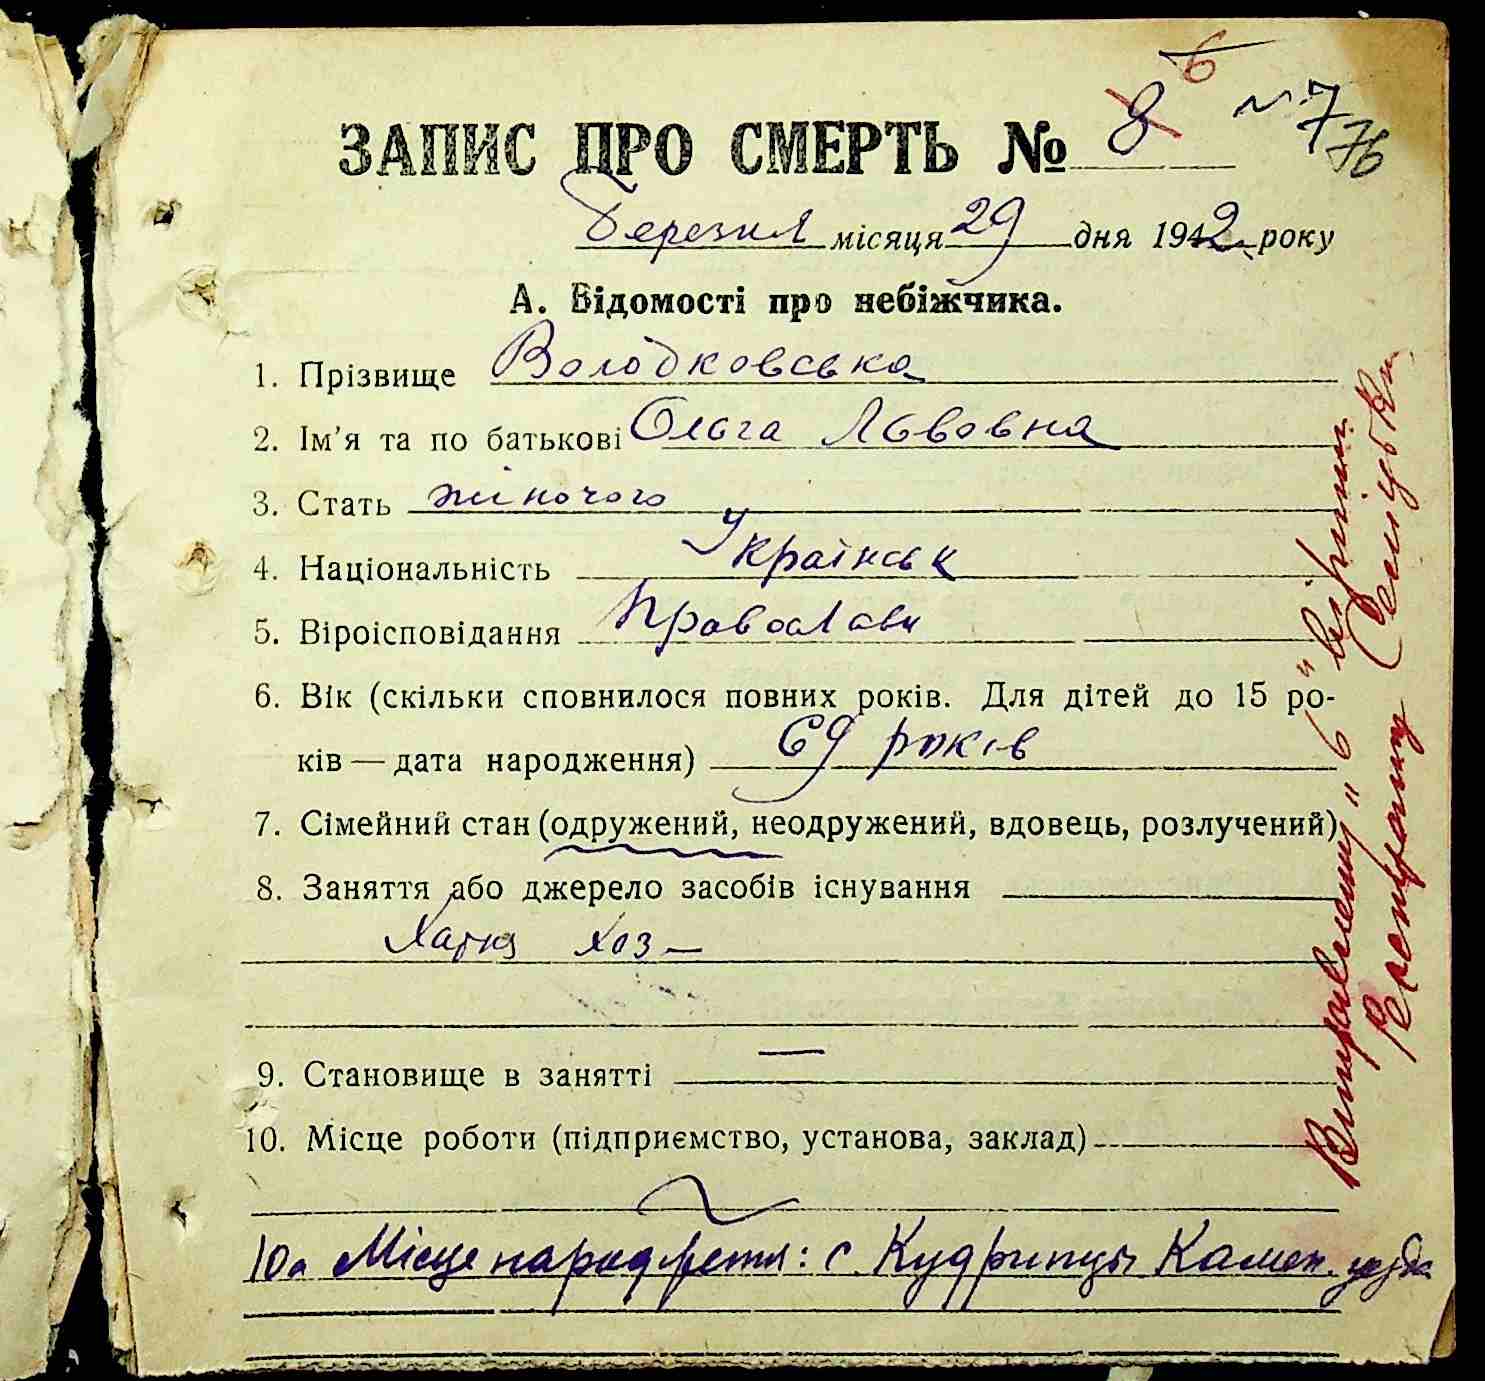 6
ЗАПИС ПРО СМЕРТЬ № 8 7
Березня місяця 29 дня 1942 року
А. Відомості про небіжчика.
1. Прізвище Володковська
2. Ім'я та по батькові Ольга Львовна
3. Стать жіночого
4. Національність Українськ
5. Віроісповідання Православн
6. Вік (скільки сповнилося повних років. Для дітей до 15 ро-
ків — дата народження) 69 років
7. Сімейний стан (одружений, неодружений, вдовець, розлучений)
8. Заняття або джерело засобів існування
хоз —
9. Становище в занятті —
10. Місце роботи (підприємство, установа, заклад)
10а Місце народження: с. Кудринцы Камен.
Виправлений "6" вірити